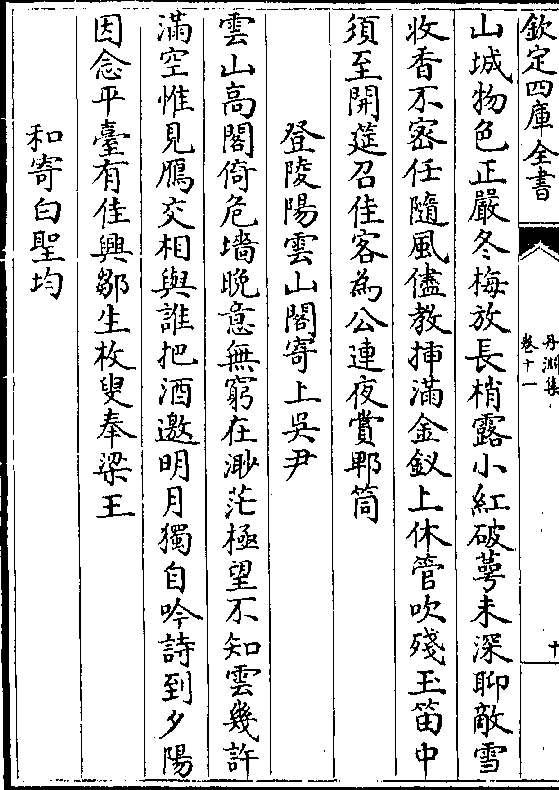 欽定四庫全書
丹淵集
卷十一
十
山城物色正嚴冬梅放長梢露小紅破萼未深聊敵雪
收香不密任隨風儘教挿滿金釵上休管吹殘玉笛中
須至開筵召佳客為公連夜賞郫筒
登陵陽雲山閣寄上吳尹
雲山高閣倚危墻晚意無窮在渺茫極望不知雲幾許
滿空惟見鴈交相與誰把酒邀明月獨自吟詩到夕陽
因念平臺有佳興鄒生枚叟奉梁王
和寄白聖均